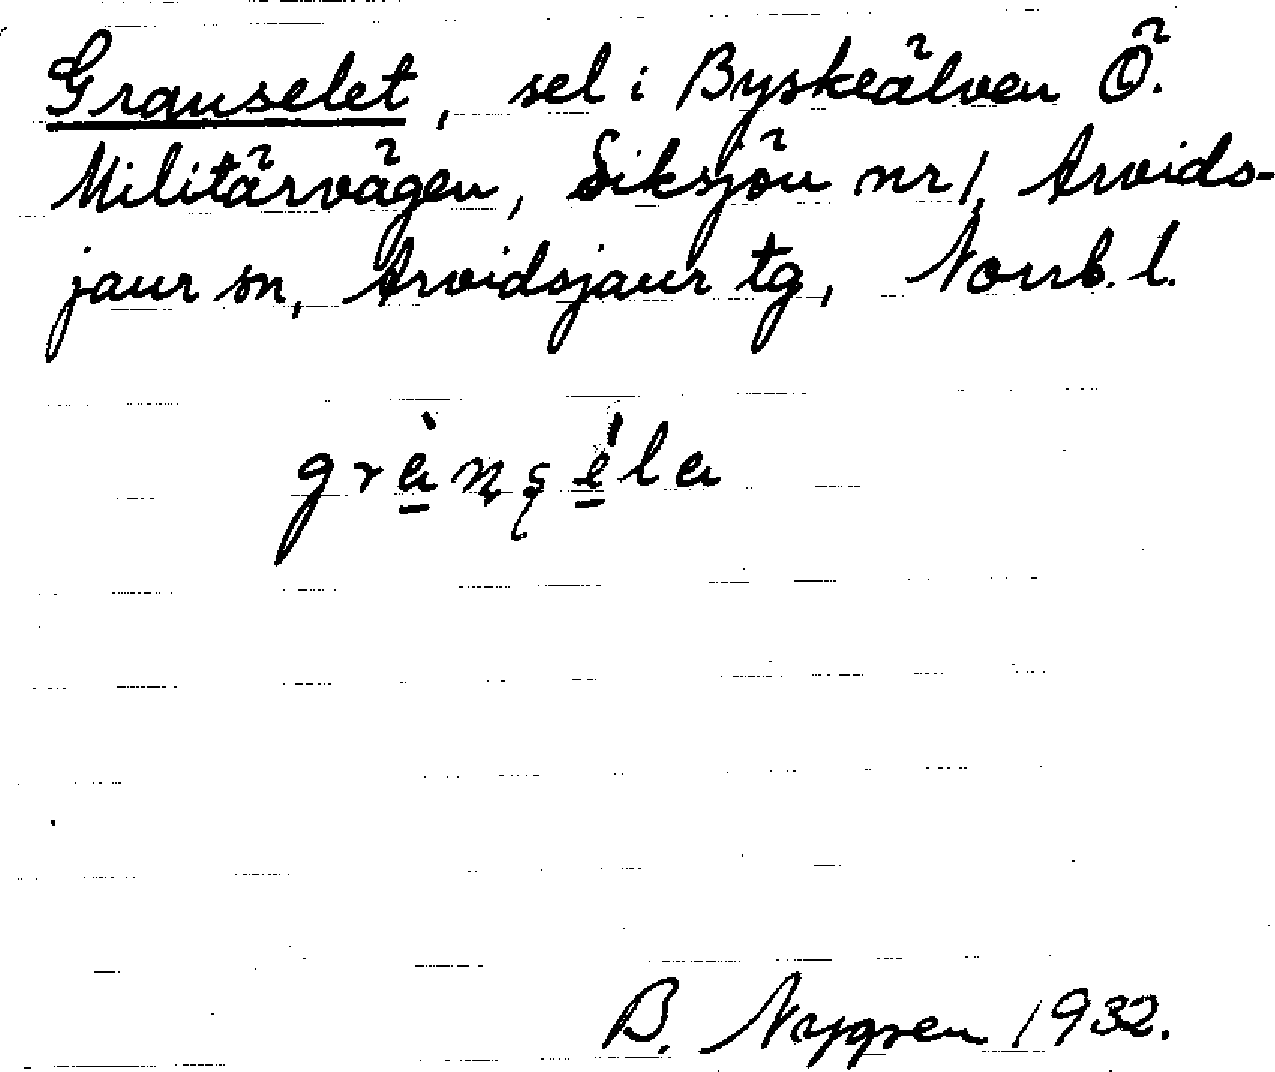 Granselet, sel i Byskeälven Ö.
Militärvägen, Siksjön nr 1, Arvids-
jaur sn, Arvidsjaur tg, Norrb. l.
grànséla
B. Nygren 1932.